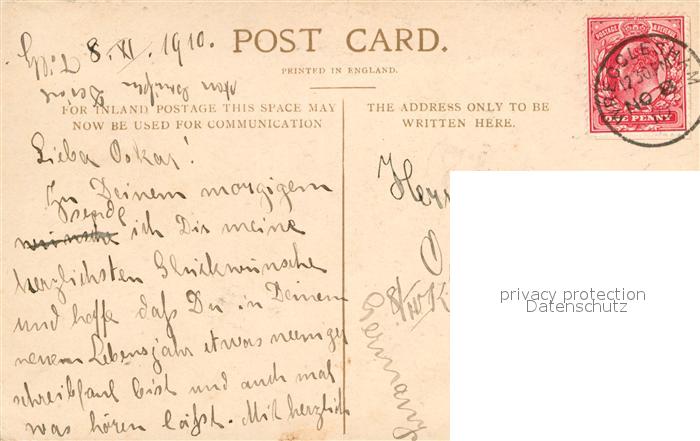 8. XI. 1910.
POST CARD.
PRINTED IN ENGLAND.
FOR INLAND POSTAGE THIS SPACE MAY
NOW BE USED FOR COMMUNICATION
THE ADDRESS ONLY TO BE
WRITTEN HERE.
POSTAGE REVENUE
ONE PENNY
ECCLEFECHAN
12.30
NO 8
Lieber Oskar!
Zu Deinem morgigem
sende
wünsche ich Dir meine
herzlichsten Glückwünsche
und hoffe daß Du in Deinem
neuen Lebensjahr etwas weniger
schreibfaul bist und auch mal
was hören läßt. Mit herzlich
Herr
O
K
Germany
privacy protection
Datenschutz